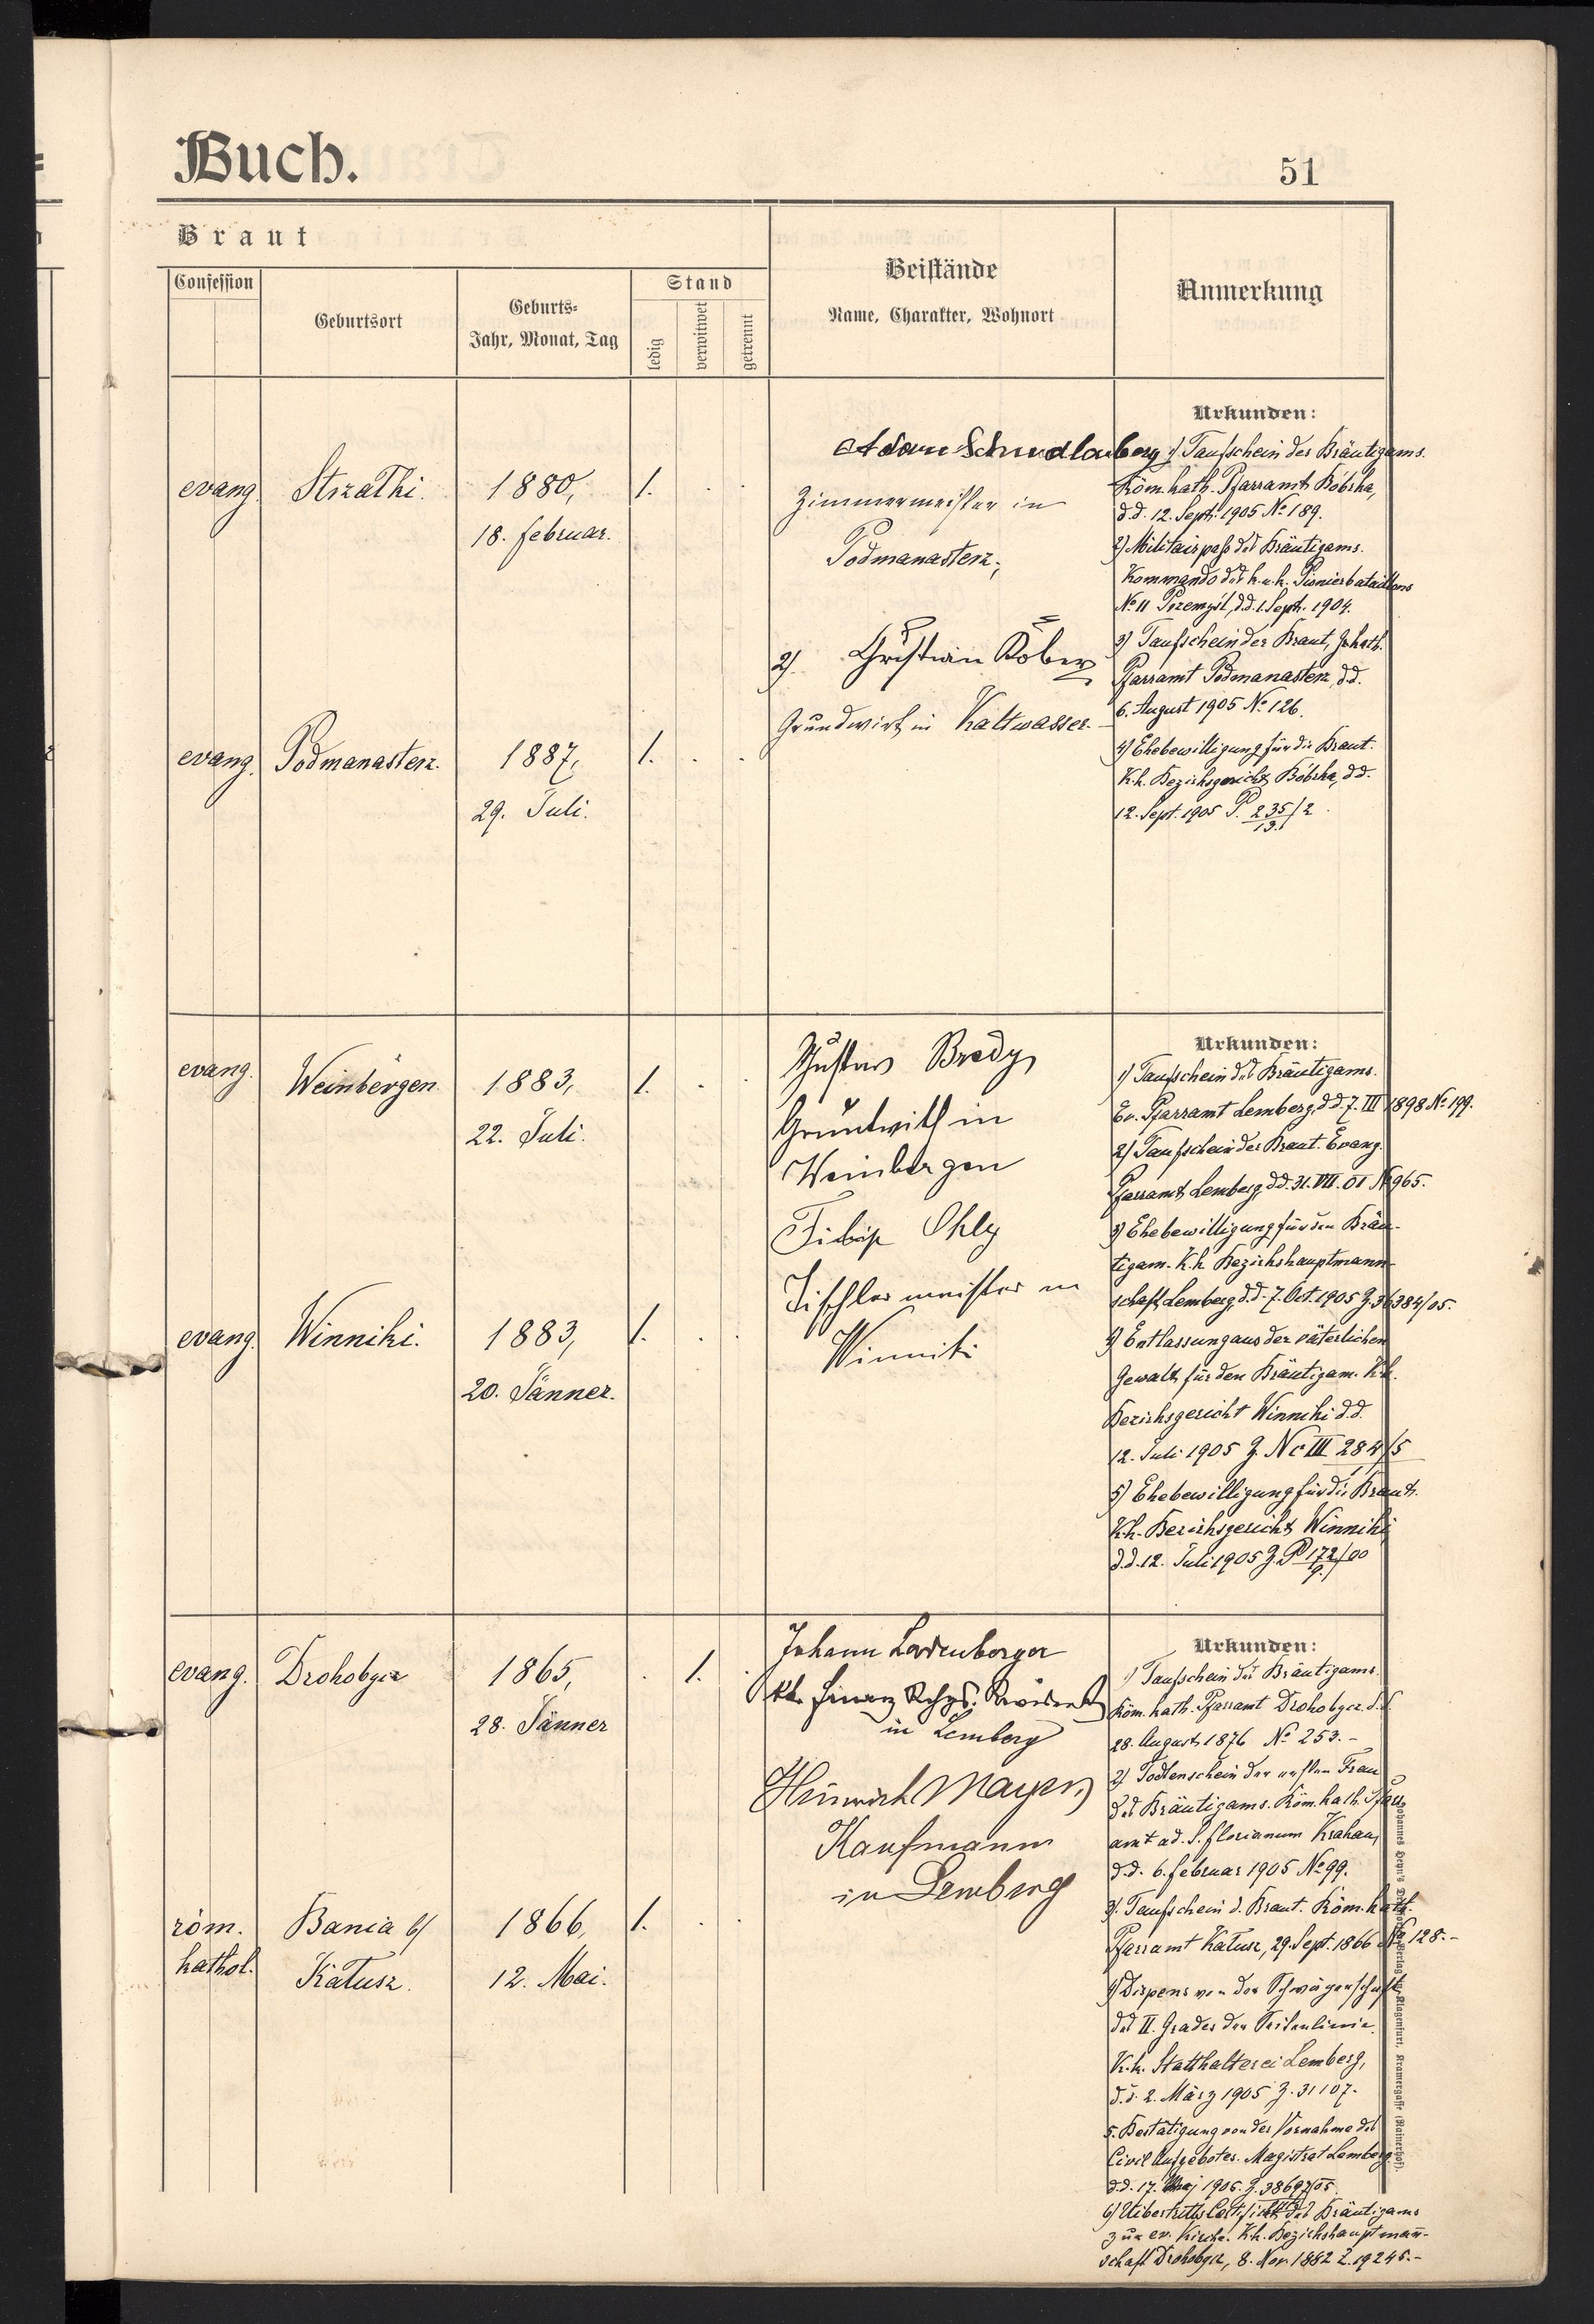 Buch.
51
Braut
Confession
Geburtsort
Geburts=
Jahr, Monat, Tag
Stand
ledig
verwitwet
getrennt
Beistände
Name, Charakter, Wohnort
Anmerkung
evang. Strzałki. 1880, 1. . .
18. Februar.
evang. Podmanasterz. 1887, 1. . .
29. Juli.
Adam
Zimmermeister in
Podmanasterz,
2). Christian Kober
Grundwirt in Kaltwasser.
Urkunden:
1) Taufschein des Bräutigams.
Röm. kath. Pfarramt Bóbrka,
d.d. 12. Sept. 1905 No 189.
2) Militairpaß des Bräutigams.
Kommando des k. u. k. Pionierbataillons
No 11 Przemyśl, d.d. 1. Sept. 1904.
3) Taufschein der Braut, kath.
Pfarramt Podmanasterz, d.d.
6. August 1905 No 126.
4) Ehebewilligung für die Braut.
K.k. Bezirksgericht Bóbrka, d.d.
12. Sept. 1905 P. 235/2
13.
evang. Weinbergen 1883, 1. . .
22. Juli.
evang. Winniki. 1883, 1. . .
20. Jänner.
Gustav Bredy
Grundwirth in
Weinbergen
Filip Ohly
Tischlermeister in
Winniki
Urkunden:
1) Taufschein des Bräutigams.
Ev. Pfarramt Lemberg, d.d. 7. III 1898 No 199.
2) Taufschein der Braut. Evang.
Pfarramt Lemberg d.d. 31. VII. 01 No 965.
3) Ehebewilligung für den Bräu-
tigam. K.k. Bezirkshauptmann-
schaft Lemberg d.d. 7. Oct. 1905 Z. 36384/05.
4) Entlassung aus der väterlichen
Gewalt für den Bräutigam. K.k.
Bezirksgericht Winniki d.d.
12. Juli 1905 Z. Nc III 284/5
1
5) Ehebewilligung für die Braut.
K.k. Bezirksgericht Winniki
d.d. 12. Juli 1905 Z. P 172/00
9.
evang. Drohobycz 1865, . 1. .
28. Jänner
röm. Bania b/ 1866, 1. . .
kathol. Kałusz. 12. Mai.
Johann Ladenberger
kk. Finanz
in Lemberg
Heinrich Mayer
Kaufmann
in Lemberg
Urkunden:
1) Taufschein des Bräutigams.
Röm. kath. Pfarramt Drohobycz d.d.
28. August 1876 No 253.-
2) Todtenschein der ersten Frau
des Bräutigams. Röm. kath. Pfarr
amt ad. S. Florianum Krakau,
d.d. 6. Februar 1905 No 99.
3). Taufschein d. Braut. Röm. kath.
Pfarramt Kałusz, 29. Sept. 1866 No 128.-
4) Dispens von der Schwägerschaft
des II. Grades der Seitenlinie.
K.k. Statthalterei Lemberg,
d.d. 2. März 1905 Z. 31107.
5. Bestätigung von der Vornahme des
Civil Aufgebotes. Magistrat Lemberg
d.d. 17. Maj 1905. Z. 38697/05.
6) Uibertritts Certificat des Bräutigams
zur ev. Kirche. K.k. Bezirkshauptmann-
schaft Drohobycz, 8. Nov. 1882 Z. 19245.-
Verlag Klagenfurt, Kramergasse (Rainerhof).